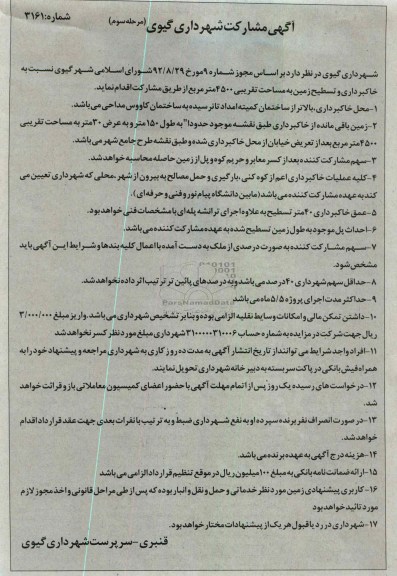 شماره: ۳۱۶۱
آگهی مشارکت شهرداری گیوی (مرحله سوم)
شهرداری گیوی در نظر دارد بر اساس مجوز شماره ۹ مورخ ۹۲/۸/۲۹ شورای اسلامی شهر گیوی نسبت به
خاکبرداری و تسطیح زمین به مساحت تقریبی ۴۵۰۰ متر مربع از طریق مشارکت اقدام نماید.
۱- محل خاکبرداری، بالاتر از ساختمان کمیته امداد تا نرسیده به ساختمان کاووس مداحی می باشد.
۲- زمین باقی مانده از خاکبرداری طبق نقشه موجود حدودا" به طول ۱۵۰ متر و به عرض ۳۰ متر به مساحت تقریبی
۴۵۰۰ متر مربع بعد از تعریض خیابان از محل خاکبرداری شده و طبق نقشه طرح جامع شهر می باشد.
۳- سهم مشارکت کننده بعد از کسر معابر و حریم کوه و پل از زمین حاصله محاسبه خواهد شد.
۴- کلیه عملیات خاکبرداری اعم از کوه کنی، بارگیری و حمل مصالح به بیرون از شهر، محلی که شهرداری تعیین می
کند به عهده مشارکت کننده می باشد (مابین دانشگاه پیام نور و فنی و حرفه ای).
۵- عمق خاکبرداری ۴۰ متر تسطیح به علاوه اجرای ترانشه پله ای با مشخصات فنی خواهد بود.
۶- احداث پل موجود به طول زمین تسطیح شده به عهده مشارکت کننده می باشد.
۷- سهم مشارکت کننده به صورت درصدی از ملک به دست آمده با اعمال کلیه بندها و شرایط این آگهی باید
مشخص شود.
۸- حداقل سهم شهرداری ۴۰ درصد می باشد و به درصدهای پائین تر ترتیب اثر داده نخواهد شد.
۹- حداکثر مدت اجرای پروژه ۵/۵ ماه می باشد
۱۰- داشتن تمکن مالی و امکانات وسایط نقلیه الزامی بوده و بنا بر تشخیص شهرداری می باشد. واریز مبلغ ۳/۰۰۰/۰۰۰
ریال جهت شرکت در مزایده به شماره حساب ۳۱۰۰۰۰۰۳۱۰۰۰۶ شهرداری مبلغ مورد نظر کسر نخواهد شد
۱۱- افراد واجد شرایط می توانند از تاریخ انتشار آگهی به مدت ده روز کاری به شهرداری مراجعه و پیشنهاد خود را به
همراه فیش بانکی در پاکت سر بسته به دبیر خانه شهرداری تحویل نمایند.
۱۲- درخواست های رسیده یک روز پس از اتمام مهلت آگهی با حضور اعضای کمیسیون معاملاتی باز و قرائت خواهد
شد.
۱۳- در صورت انصراف نفر برنده سپرده او به نفع شهرداری ضبط و به ترتیب با نفرات بعدی جهت عقد قرارداد اقدام
خواهد شد.
۱۴- هزینه درج آگهی به عهده برنده می باشد.
۱۵- ارائه ضمانت نامه بانکی به مبلغ ۱۰۰ میلیون ریال در موقع تنظیم قرارداد الزامی می باشد
۱۶- کاربری پیشنهادی زمین مورد نظر خدماتی و حمل و نقل و انبار بوده که پس از طی مراحل قانونی و اخذ مجوز لازم
مورد تائید خواهد بود
۱۷- شهرداری در رد یا قبول هر یک از پیشنهادات مختار خواهد بود.
قنبری - سرپرست شهرداری گیوی